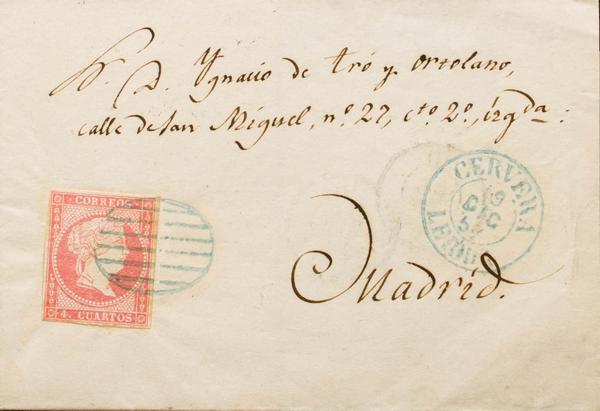 S. D. Ygnacio de Tró y Ortolano,
calle de San Miguel, nº 27, cto 2º, izqda:
Madrid.
CORREOS
4. CUARTOS
CERVERA
DIC
LERIDA